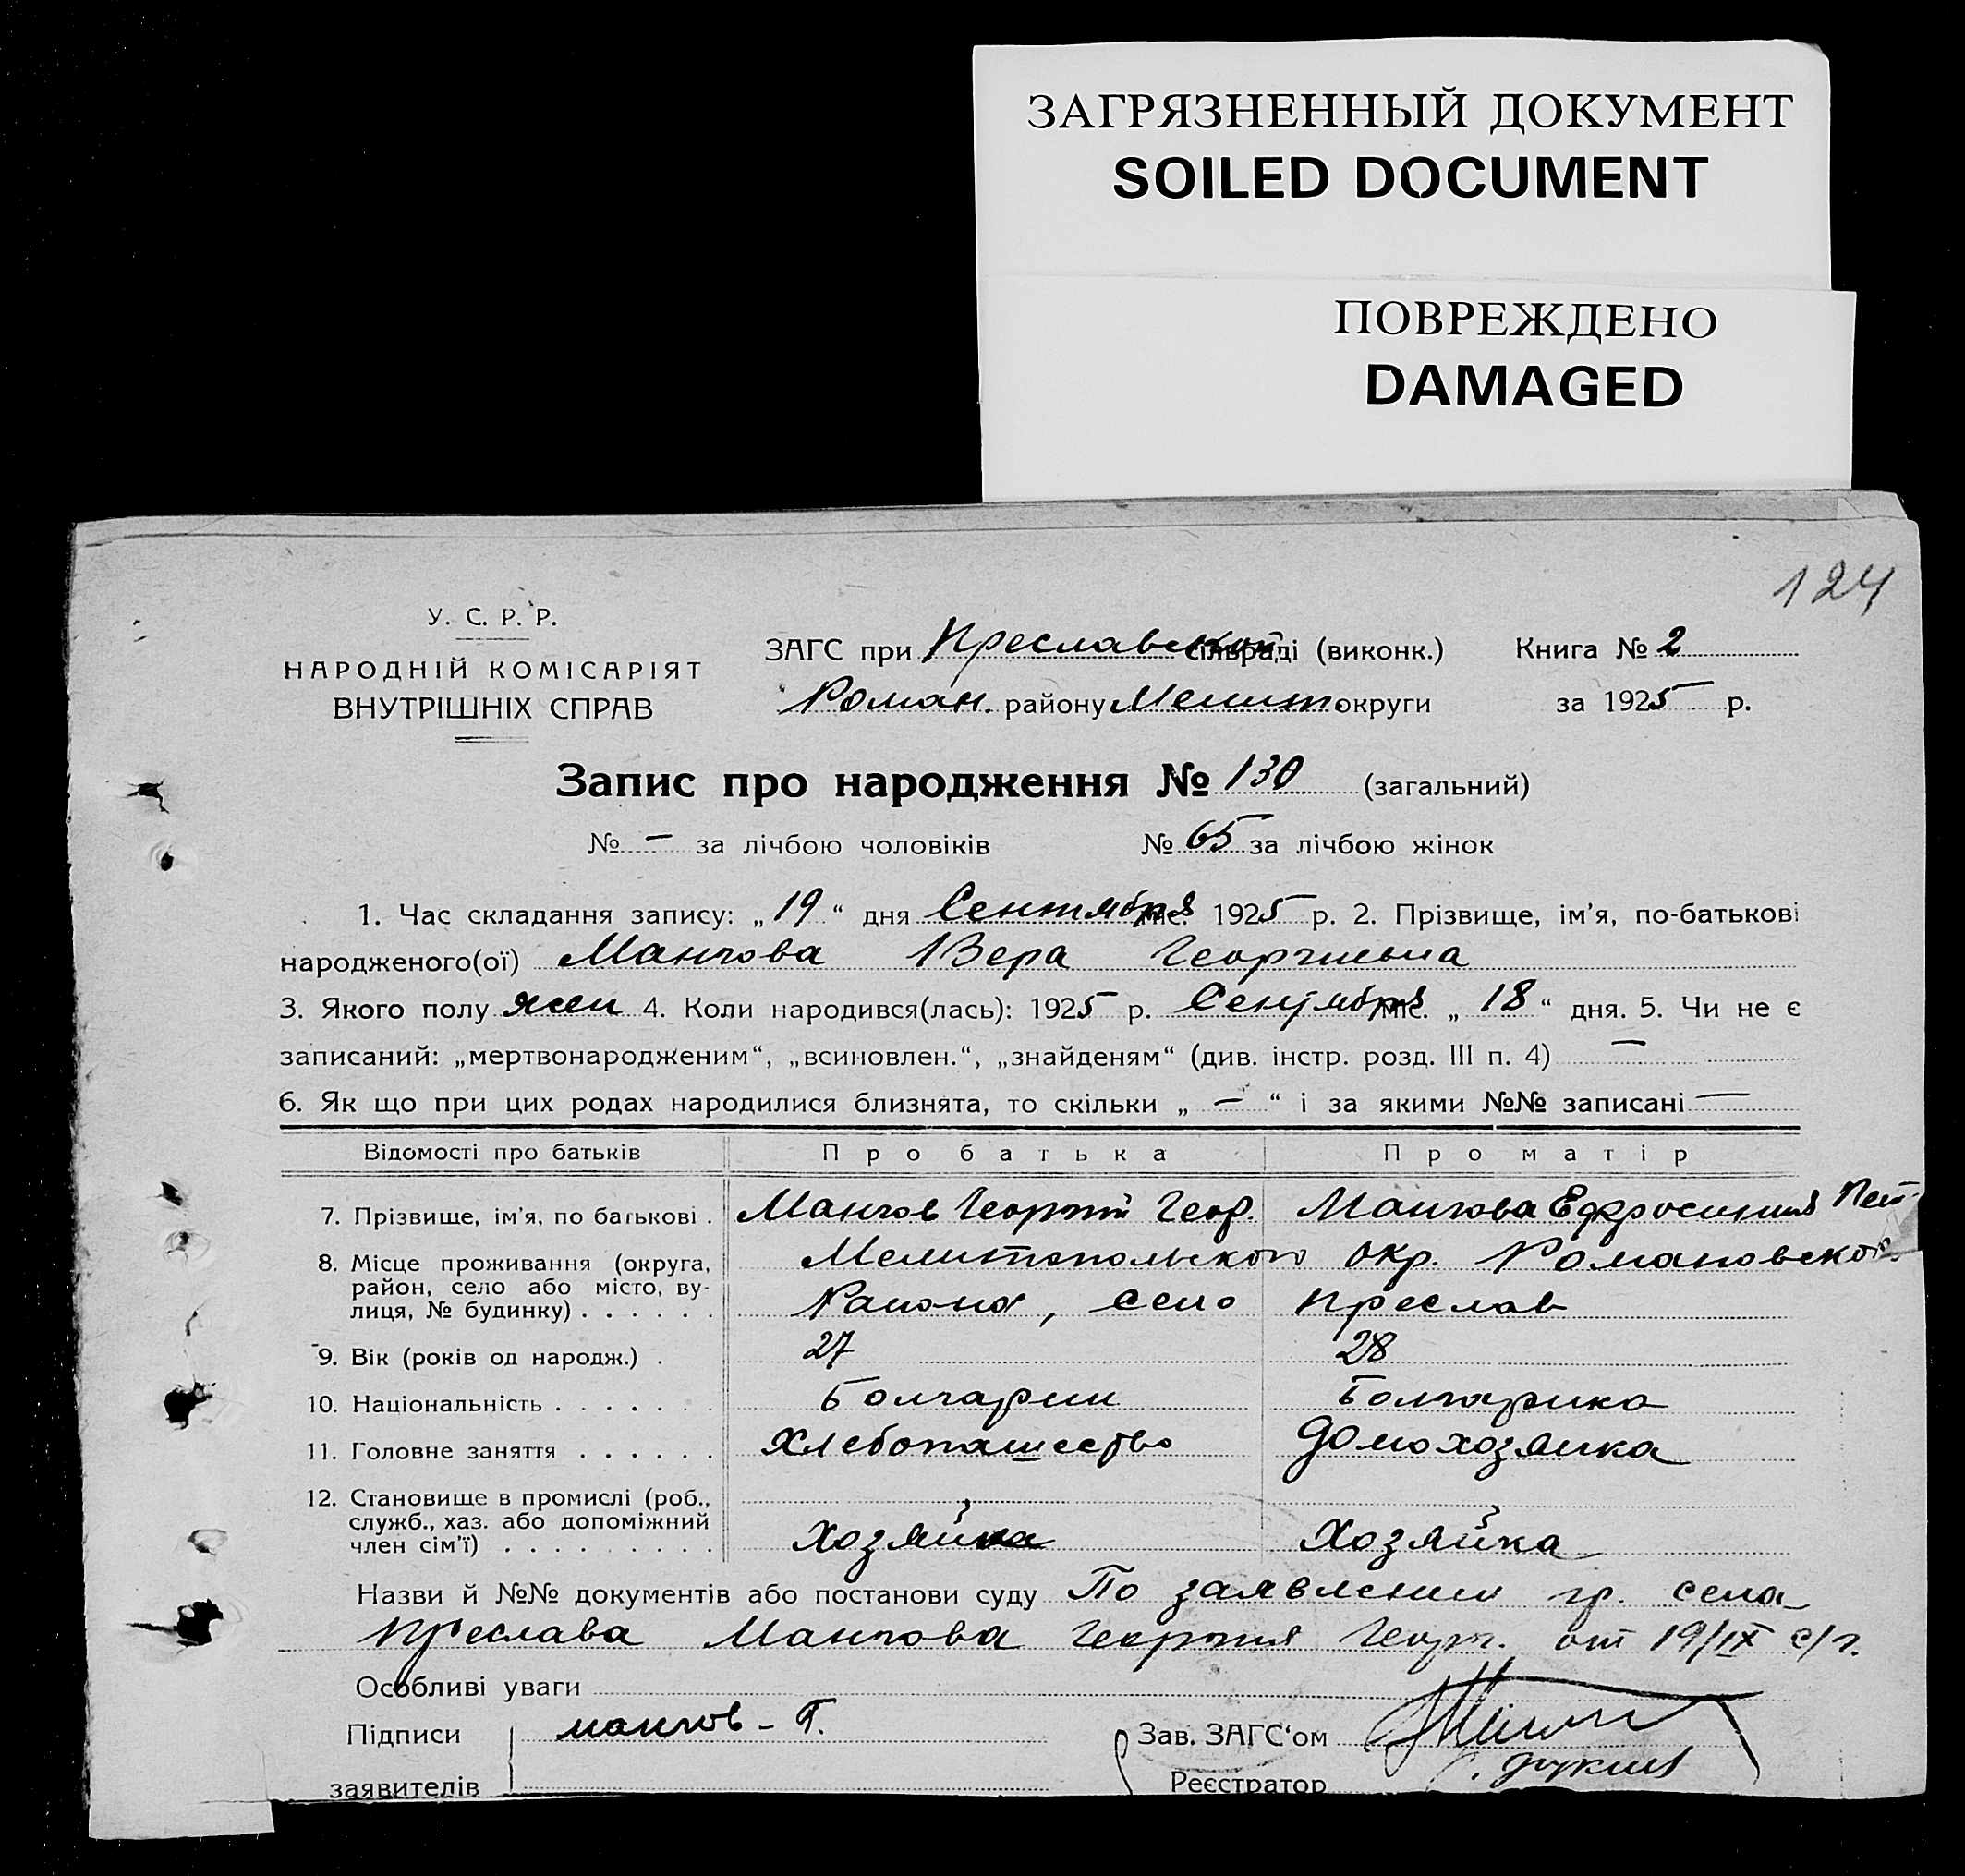 ЗАГРЯЗНЕННЫЙ ДОКУМЕНТ
SOILED DOCUMENT
ПОВРЕЖДЕНО
DAMAGED
124
У. С. Р. Р.
НАРОДНІЙ КОМІСАРІЯТ
ВНУТРІШНІХ СПРАВ
ЗАГС при Преславской сільраді (виконк.) Книга № 2
Роман. району Мелит округи за 1925 р.
Запис про народження № 130 (загальний)
№ — за лічбою чоловіків № 65 за лічбою жінок
1. Час складання запису: „19“ дня Сентября міс. 1925 р. 2. Прізвище, ім’я, по-батькові
народженого(ої) Манчова Вера Георгиевна
3. Якого полу жен 4. Коли народився(лась): 1925 р. Сентября міс. „18“ дня. 5. Чи не є
записаний: „мертвонародженим“, „всиновлен.“, „знайденям“ (див. інстр. розд. III п. 4) —
6. Як що при цих родах народилися близнята, то скільки „ — “ і за якими №№ записані —
Відомості про батьків Про батька Про матір
7. Прізвище, ім’я, по батькові . Манчов Георгий Геор. Манчова Ефросиния Пет
8. Місце проживання (округа, район, село або місто, вулиця, № будинку) . . . . . . Мелитопольского окр. Романовского
Района, село Преслав
9. Вік (років од народж.) . 27 28
10. Національність . . . . . . . Болгарин Болгарка
11. Головне заняття . . . . . . Хлебопашество Домохозяйка
12. Становище в промислі (роб., служб., хаз. або допоміжний член сім’ї) . . . . . . . . . Хозяин Хозяйка
Назви й №№ документів або постанови суду По заявлению гр. села
Преслава Манчова Георгия Георг. от 19/IX с/г.
Особливі уваги
Підписи манчов - Г. Зав. ЗАГС‘ом
заявителів Реєстратор